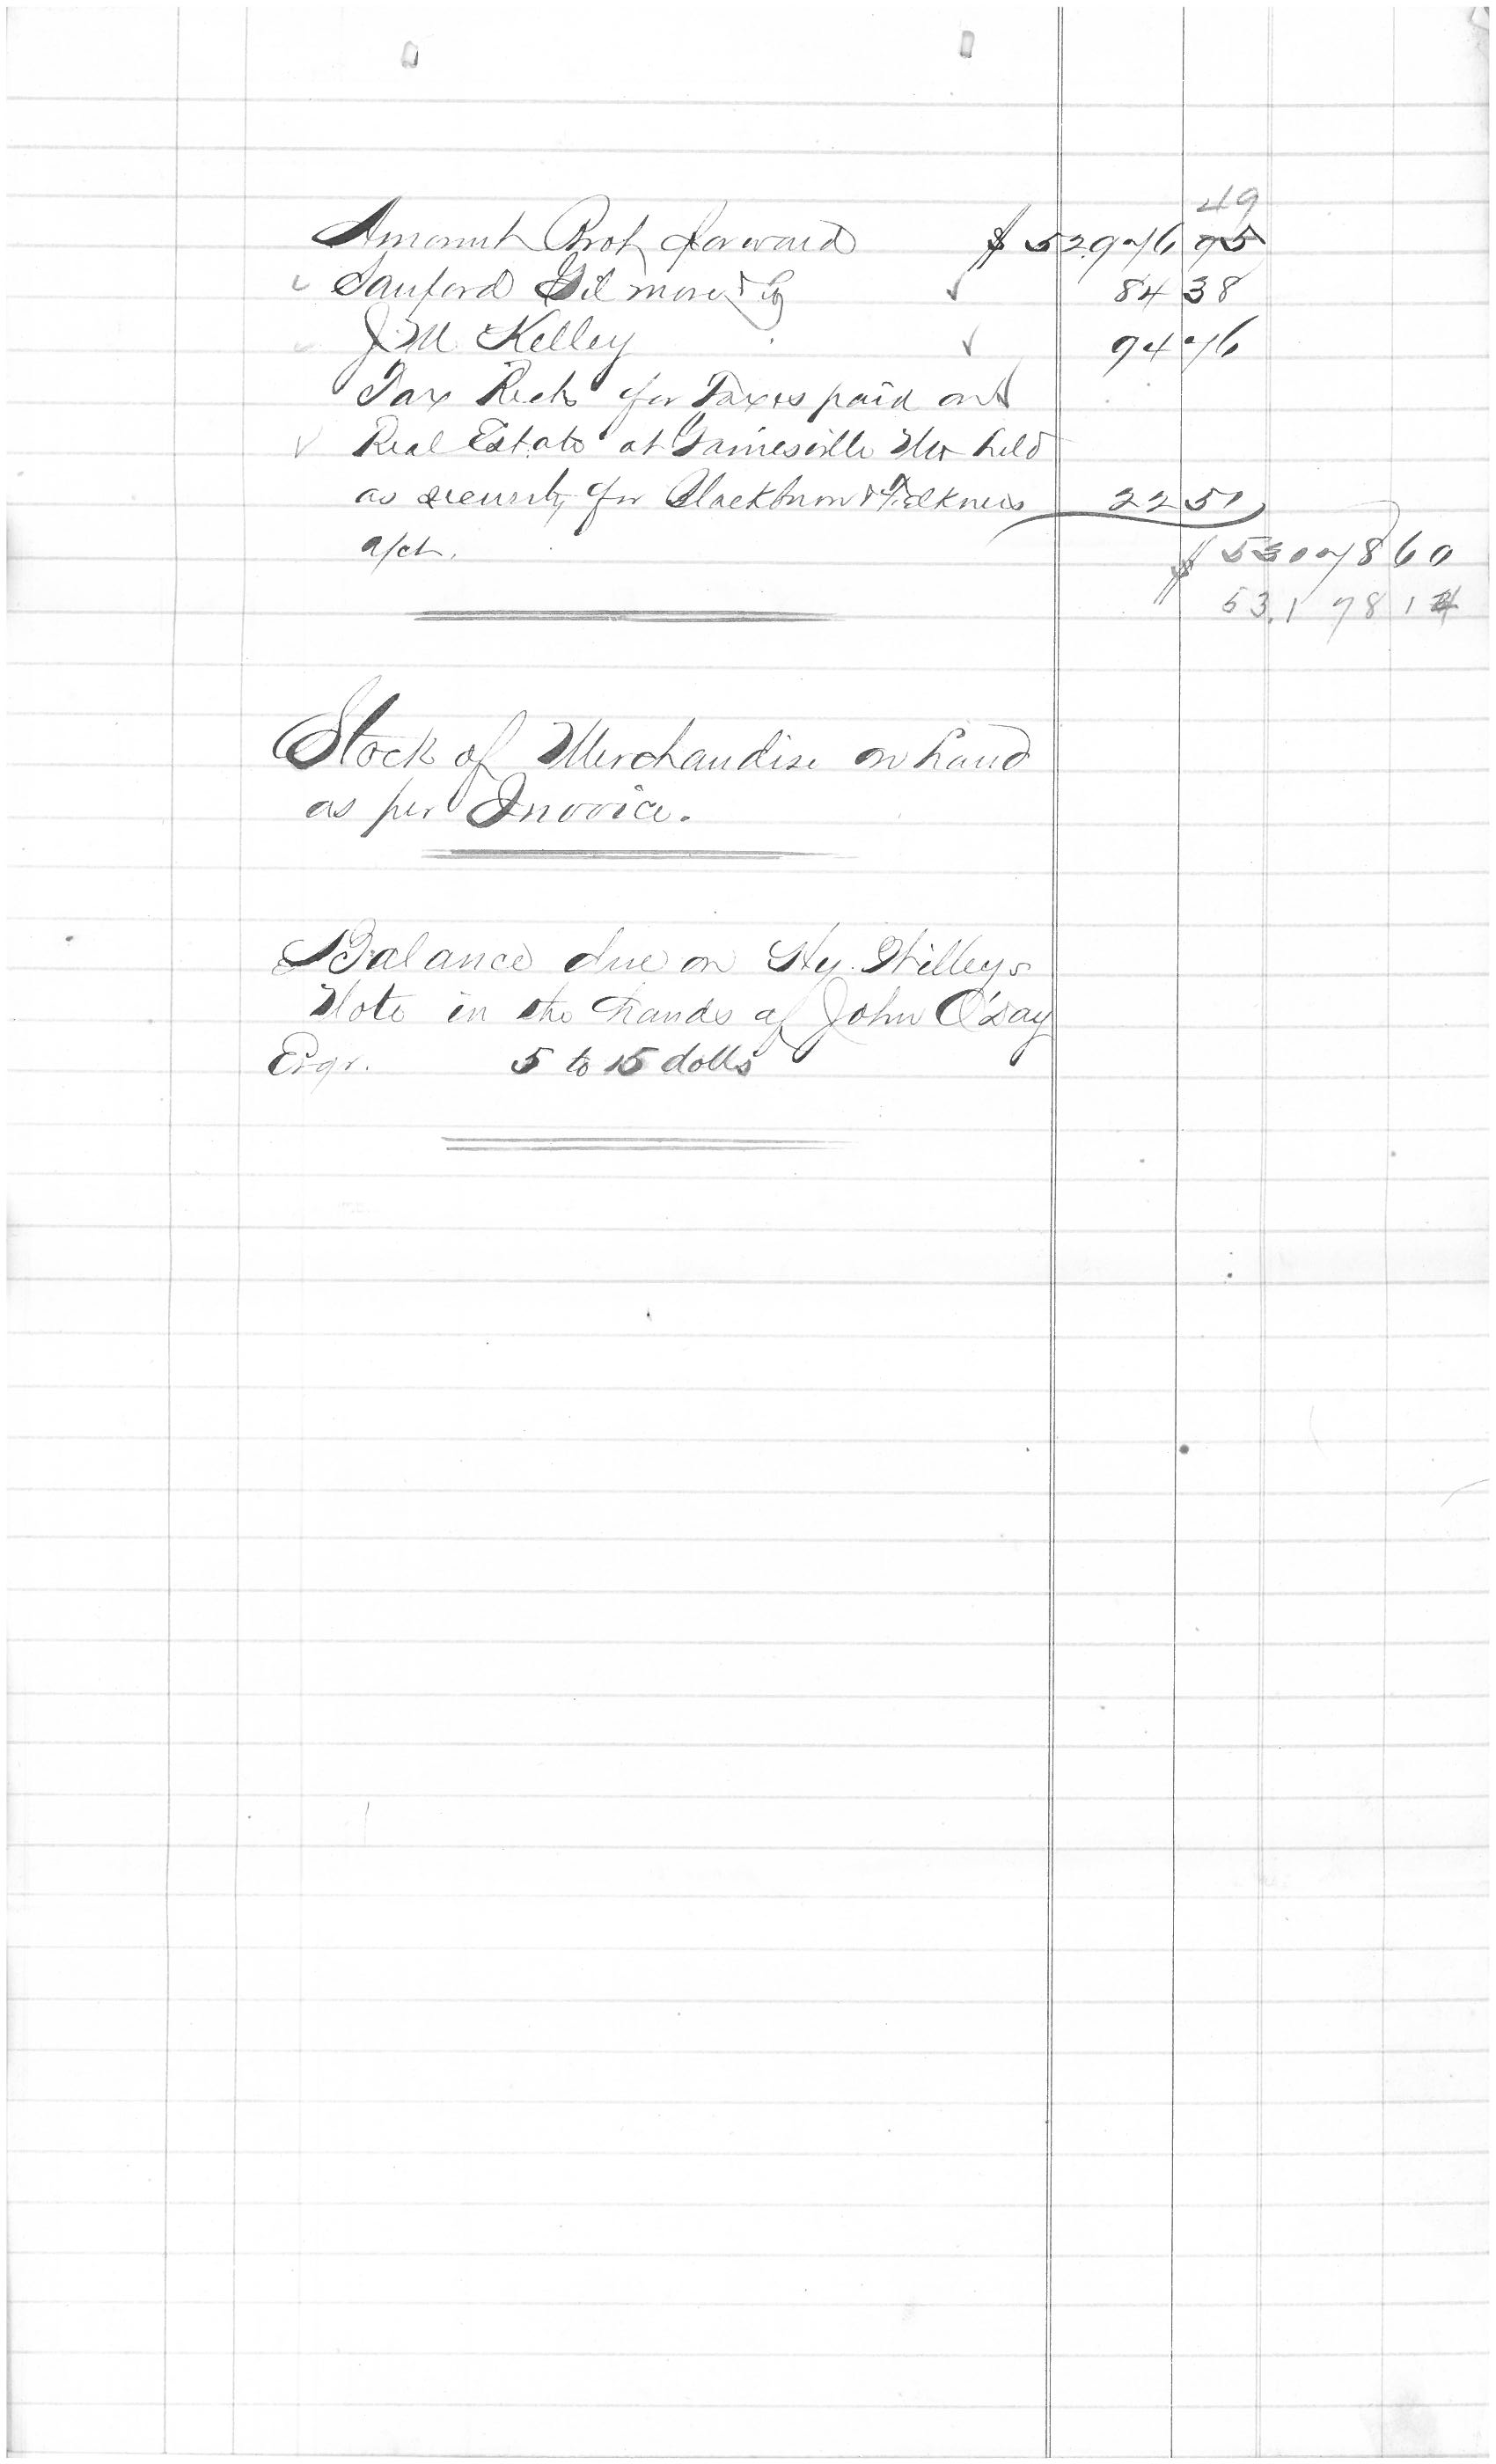 49
Amount Brot forward $ 52976 95
Sanford Gilmore & Co 84 38
J. M Kelley 94 76
Tax Rects for Taxes paid on
Real Estate at Gainesville Mo held
as security for Blackburn &
a/ct. 22 51
$ 53078 60
53178 14
Stock of Merchandise on hand
as per Invoice.
Balance due on Hy.
Note in the hands of John O'Day
Esqr. 5 to 15 dolls